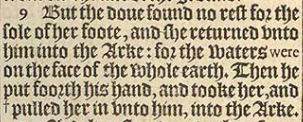 9 But the doue found no rest for the
sole of her foote, and she returned vnto
him into the Arke: for the waters were
on the face of the whole earth. Then he
put foorth his hand, and tooke her, and
†pulled her in vnto him, into the Arke.